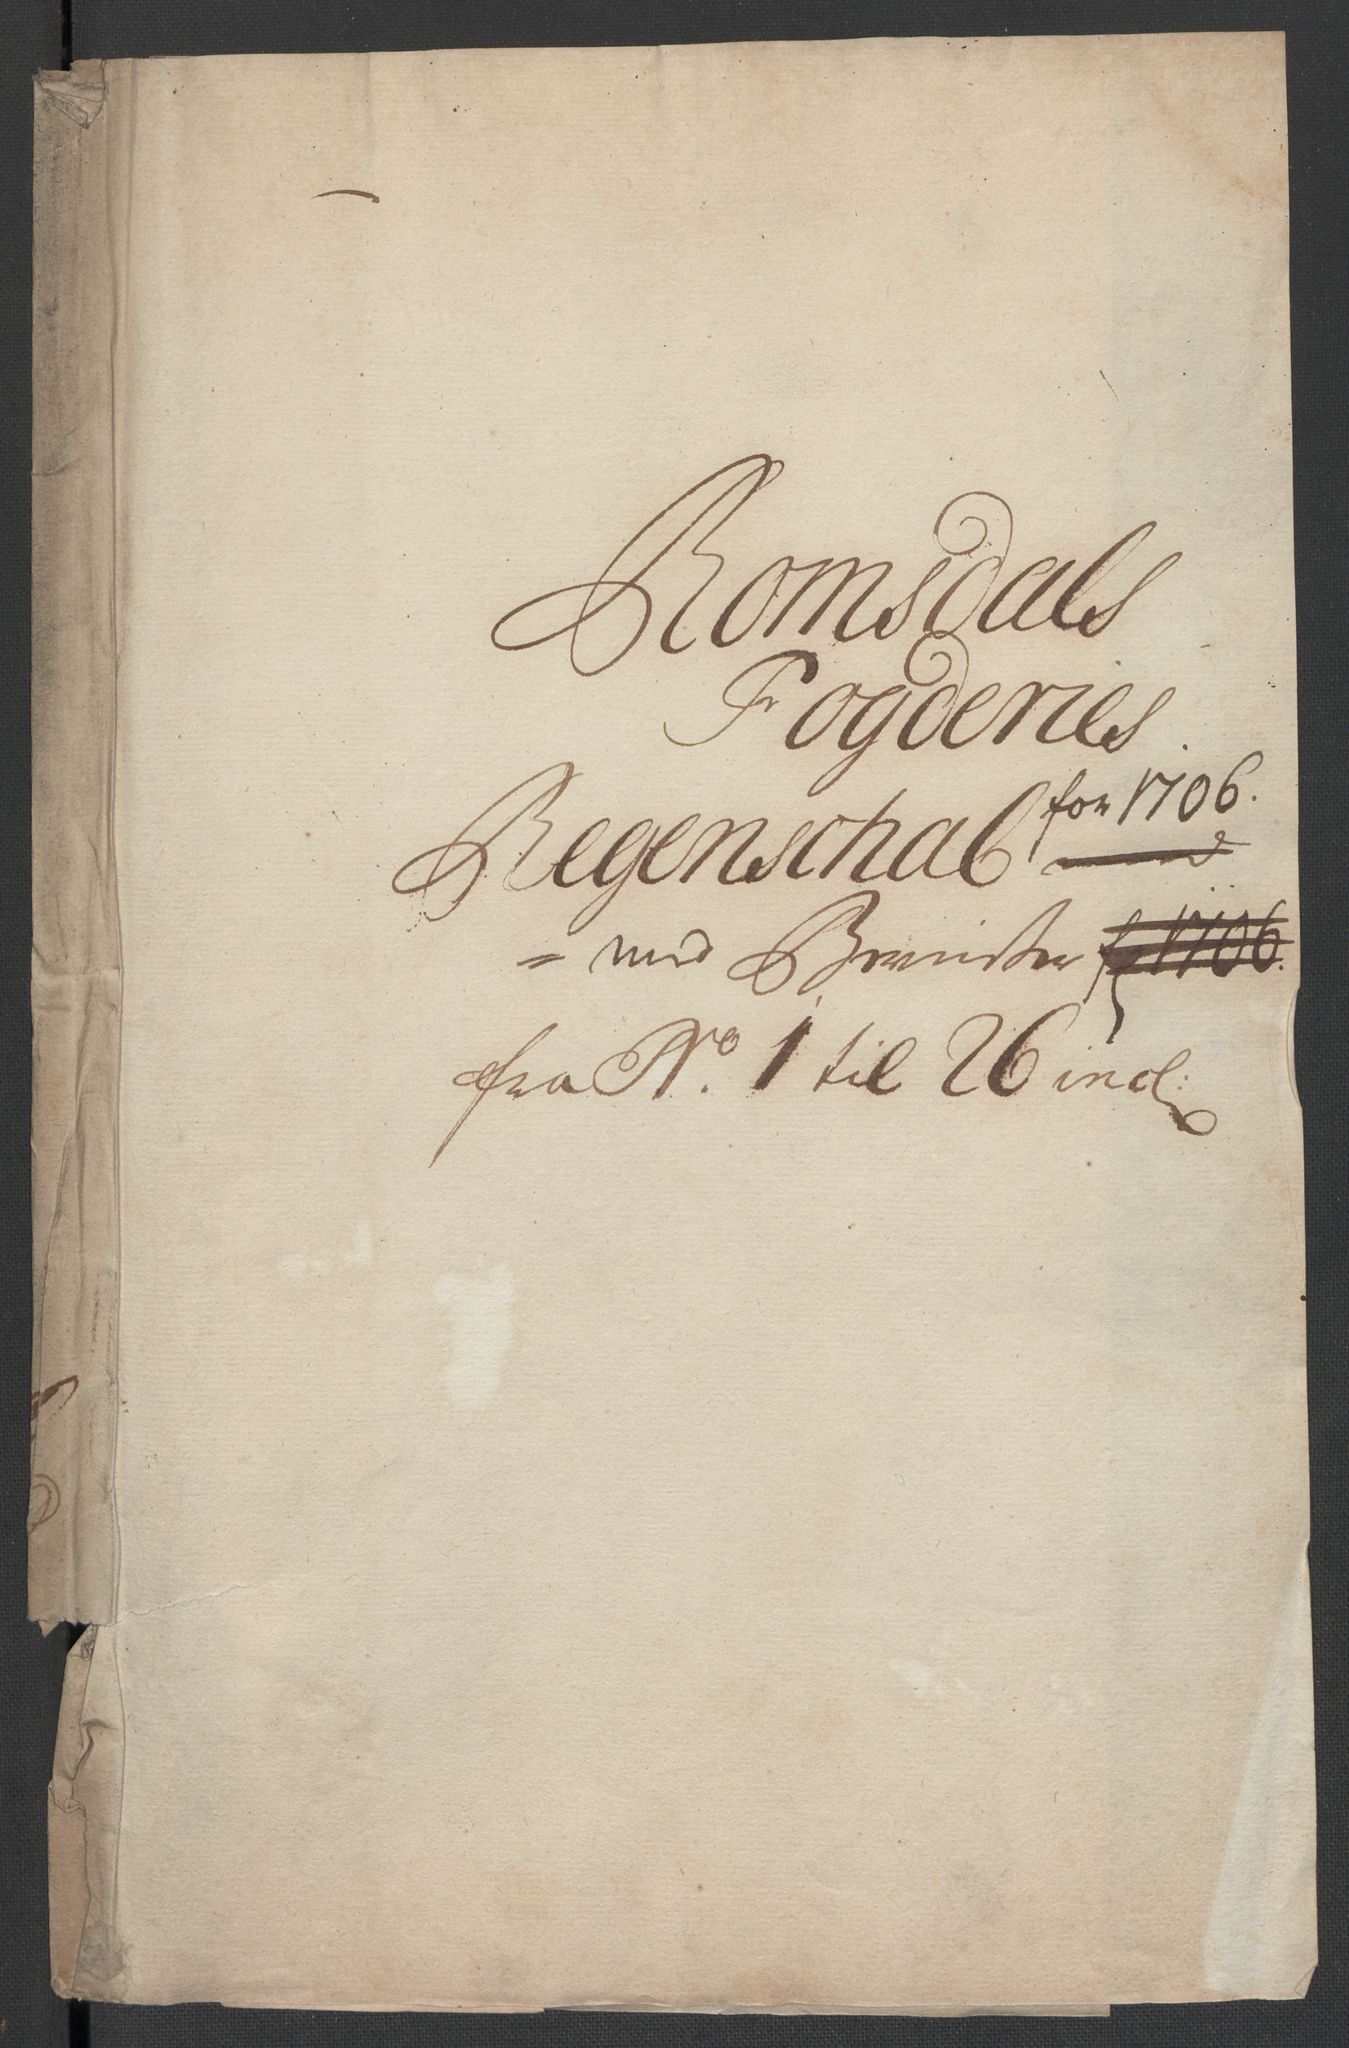 Romsdals
Fogderies
Regenschab for 1706.
= med Beviiser 1706.
fra No. 1 til 26 incl: